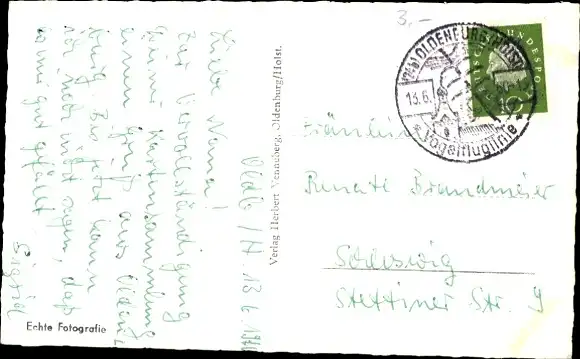 3,-
(24a) OLDENBURG (HOLST)
13.6.
Vogelfluglinie
DEUTSCHE BUNDESPOST
10
Oldb/H. 13.6.
Liebe
Zur Vervollständigung
Deiner Kartensammlung
einen Gruß aus Olden-
burg. Bis jetzt kann
ich noch nicht sagen, daß
es mir gut gefällt.
Sigrid
Echte Fotografie
Verlag Herbert Venneberg, Oldenburg/Holst.
Fräulein
Renate Brandmeier
Schleswig
Stettiner Str. 9